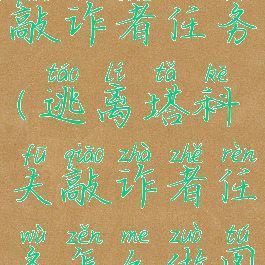 敲诈者任务
táo lí tǎ kē
(逃离塔科
fū qiāo zhà zhě rèn
夫敲诈者任
wù zěn me zuò tú
务怎么做图